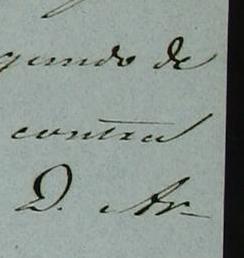 gundo de
contra
D. Ar-